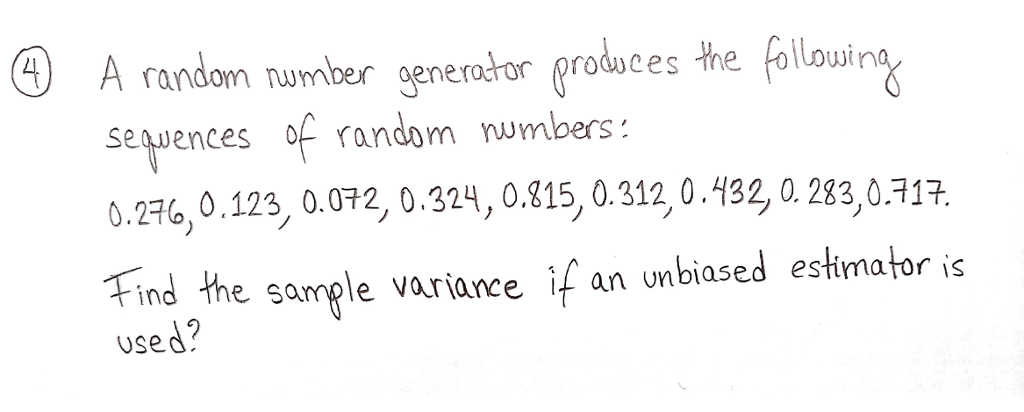 ④ A random number generator produces the following
sequences of random numbers:
0.276, 0.123, 0.072, 0.324, 0.815, 0.312, 0.432, 0.283, 0.717.
Find the sample variance if an unbiased estimator is
used?